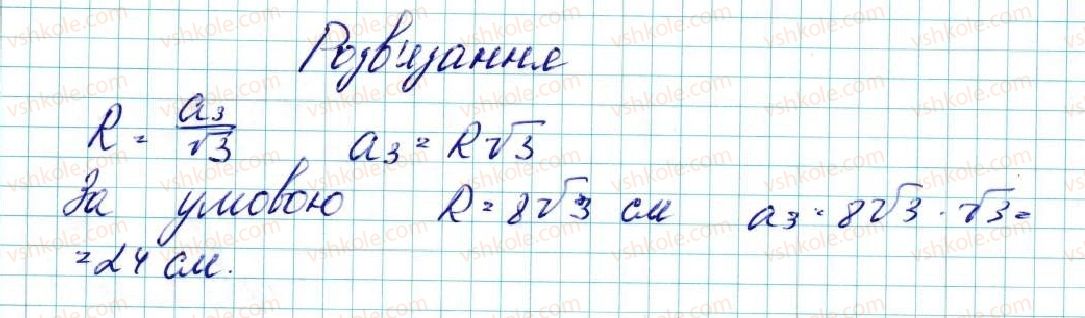 Розв'язання
R = a₃/√3 a₃ = R√3
За умовою R = 8√3 см a₃ = 8√3 · √3 =
= 24 см.